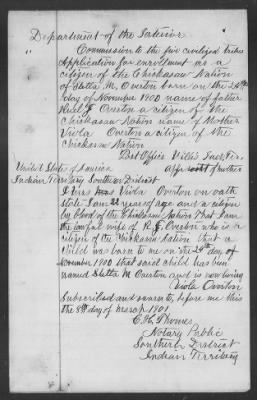 Department of the Interior
" Commission to the five civilized tribes
Application for enrollment as a
citizen of the Chickasaw Nation
of Sletta M. Overton born on the 24th
day of November 1900 name of father
R. J. Overton a citizen of the
Chickasaw Nation name of Mother
Viola Overton a citizen of the
Chickasaw Nation
Post Office Willis Ind. Ter.
United States of America of Mother
Indian Territory Southern District
I Mrs Viola Overton on oath
state I am 22 years of age and a citizen
by blood of the Chickasaw Nation that I am
the lawful wife of R. J. Overton who is a
citizen of the Chickasaw Nation that a
child was born to me on the 24th day of
November 1900 that said child has been
named Sletta M Overton and is now living
Viola Overton
Subscribed and sworn to, before me this
the 8th day of March 1901
C. H. Thomas,
Notary Public
Southern District
Indian Territory